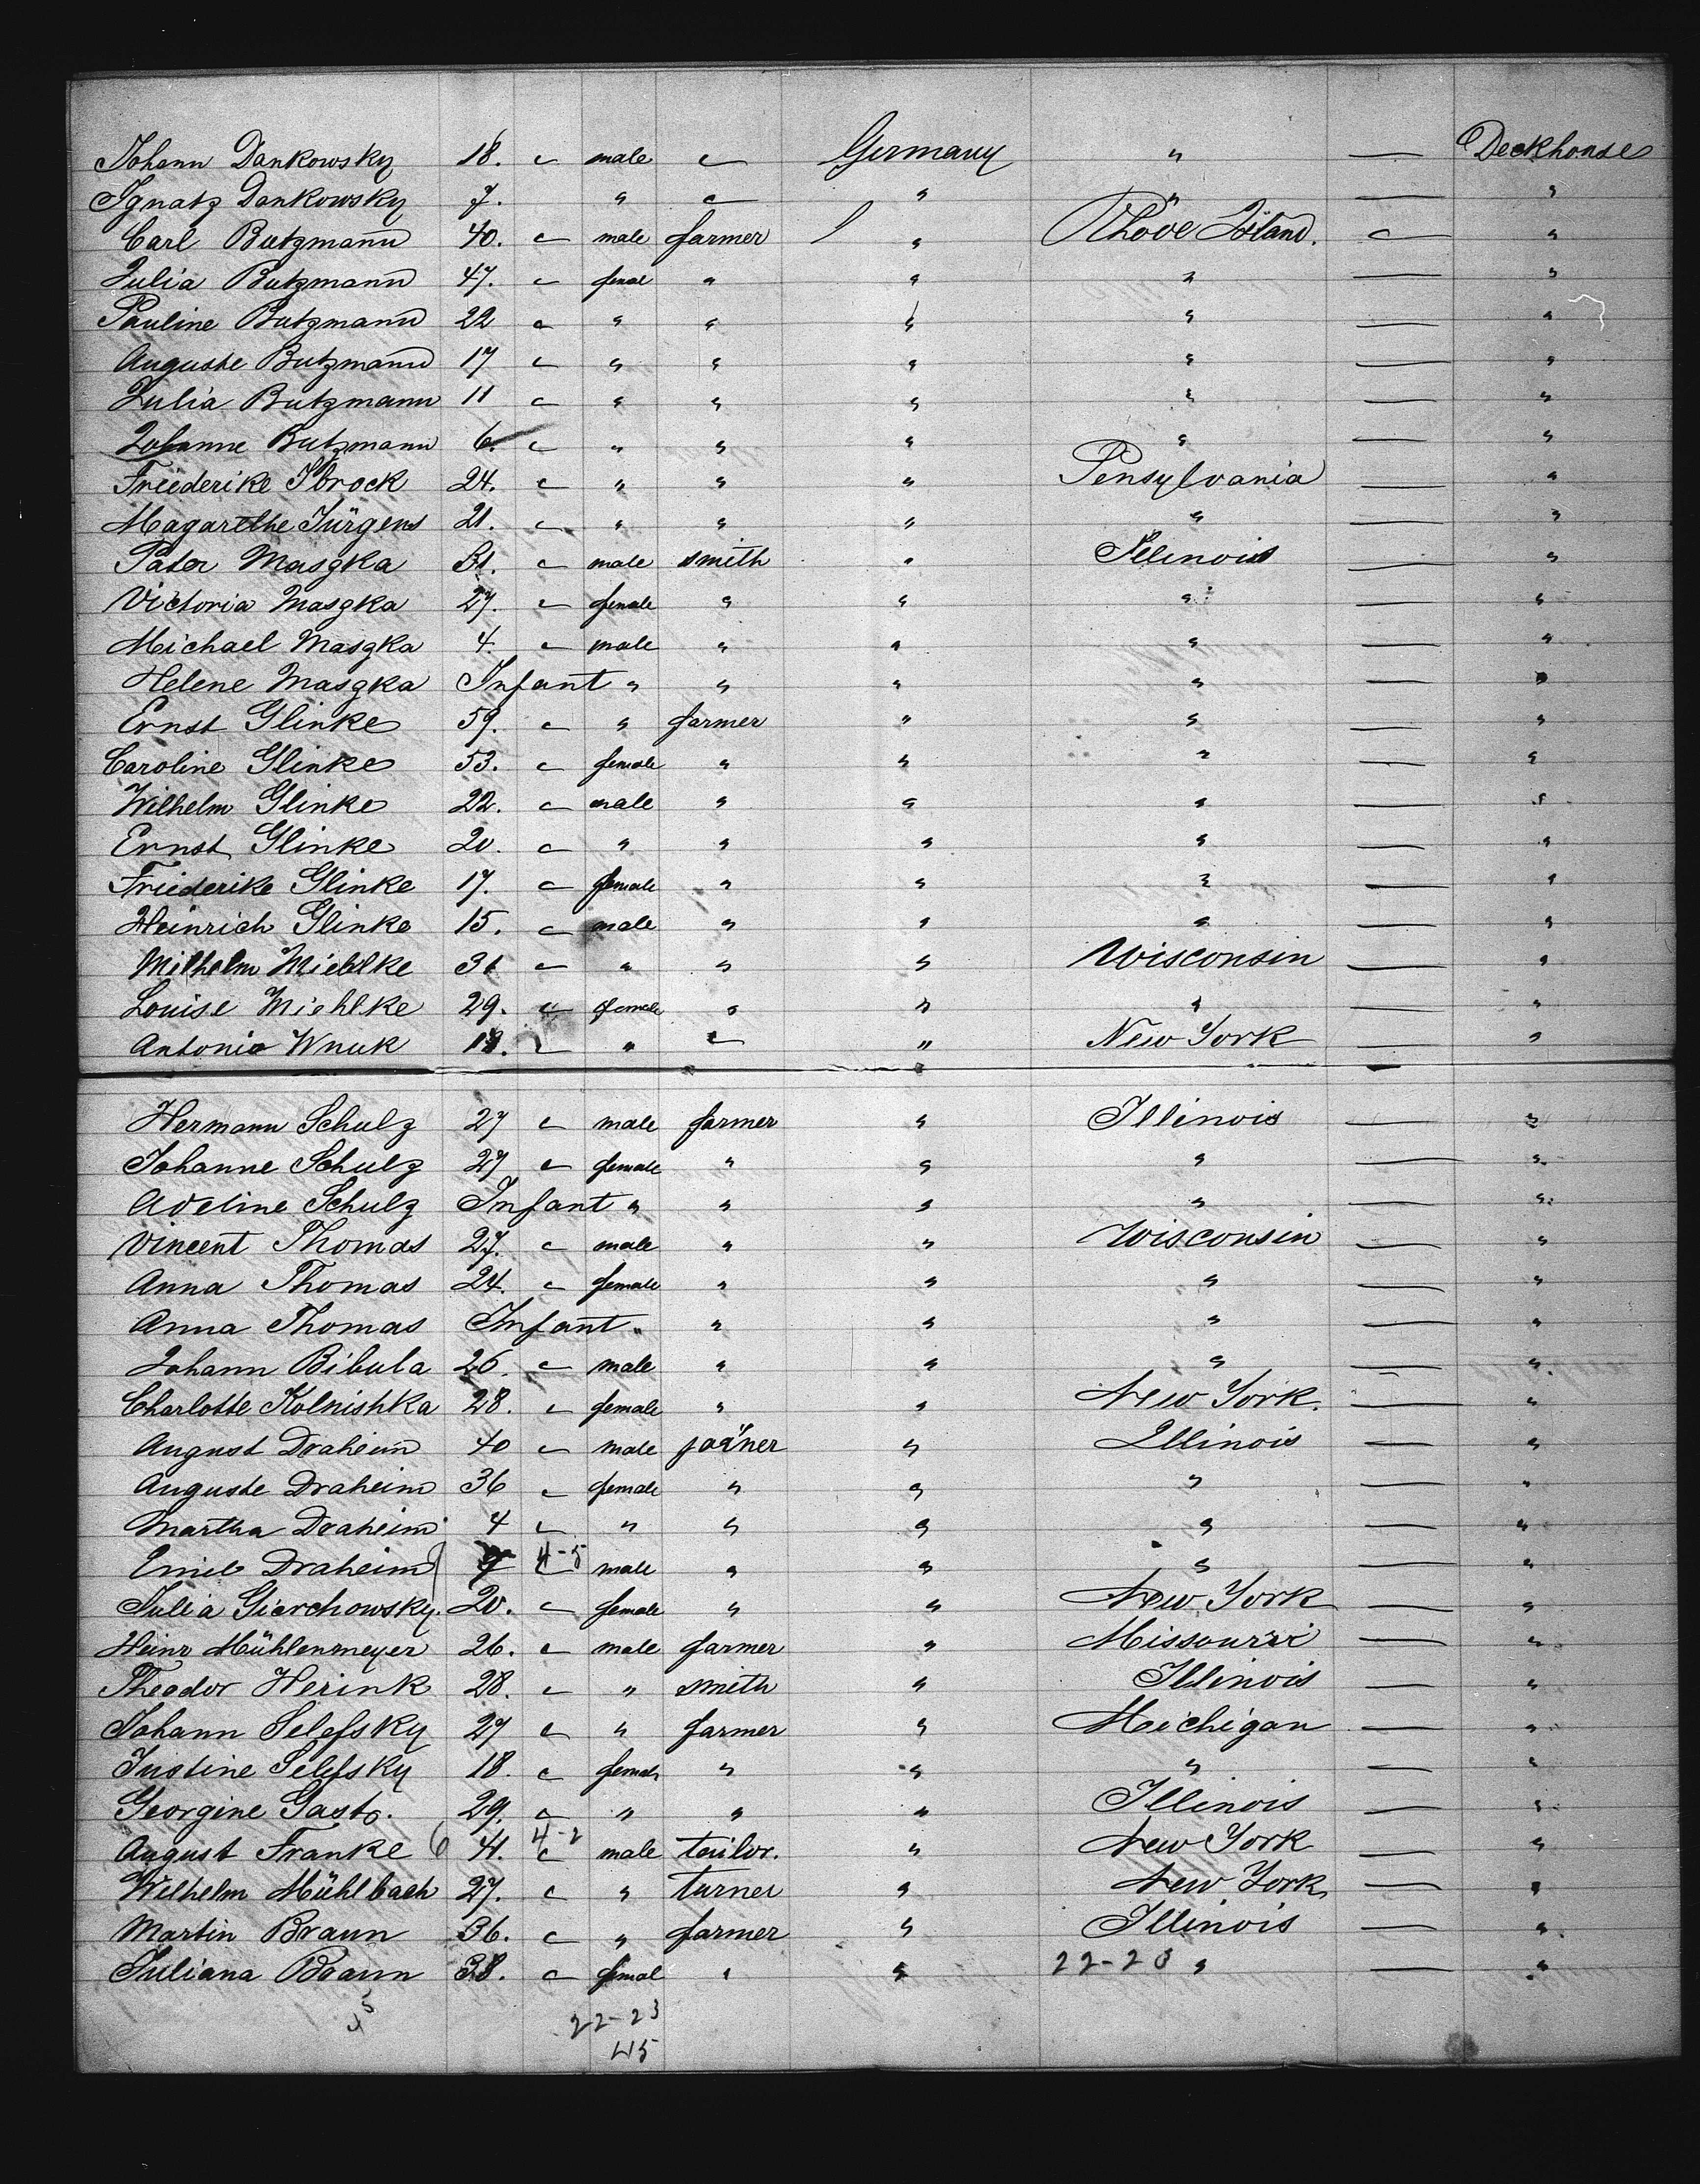 Johann Dankowsky 18. " male " Germany " — Deckhouse
Ignatz Dankowsky 7. " " " " — "
Carl Butzmann 40. " male farmer " Rhode Island. — "
Julia Butzmann 47. " femal " " " — "
Pauline Butzmann 22 " " " " " — "
Auguste Butzmann 17 " " " " " — "
Julia Butzmann 11 " " " " " — "
Johanne Butzmann 6. " " " " " — "
Friederike Ibrock 24. " " " " Pensylvania — "
Magarethe Jürgens 21. " " " " " — "
Pater Maszka 31. " male smith " Illinois — "
Victoria Maszka 27. " female " " " — "
Michael Maszka 4. " male " " " — "
Helene Maszka Infant " " " " — "
Ernst Glinke 59. " " farmer " " — "
Caroline Glinke 53. " female " " " — "
Wilhelm Glinke 22. " male " " " — "
Ernst Glinke 20. " " " " " — "
Friederike Glinke 17. " female " " " — "
Heinrich Glinke 15. " male " " " — "
Wilhelm Miehlke 31 " " " " Wisconsin — "
Louise Miehlke 29. " female " " " — "
Antonie Wnuk " " " " New York — "
Hermann Schulz 27 " male farmer " Illinois — "
Johanne Schulz 27 " female " " " — "
Adeline Schulz Infant " " " " — "
Vincent Thomas 27. " male " " Wisconsin — "
Anna Thomas 24. " female " " " — "
Anna Thomas Infant " " " " — "
Johann Bibula 26. " male " " " — "
Charlotte Kolnishka 28. " female " " New York. — "
August Draheim 40 " male joäner " Illinois — "
Auguste Draheim 36 " female " " " — "
Martha Draheim 4 " " " " " — "
Emil Draheim 4-5 " male " " " — "
Julia Gierchowsky. 20. " female " " New York — "
Heinr Mühlenmeyer 26. " male farmer " Missouri — "
Theodor Herink 28. " " smith " Illinois — "
Johann Selefsky 27 " " farmer " Michigan — "
Justine Selefsky 18. " female " " " — "
Georgine Gast. 29. " " " " Illinois — "
August Franke 41. 4-2 " male teilor. " New York — "
Wilhelm Mühlbach 27. " " turner " New York — "
Martin Braun 36. " " farmer " Illinois — "
Juliana Braun 38. " femal " " 22-23 " — "
22-23
45